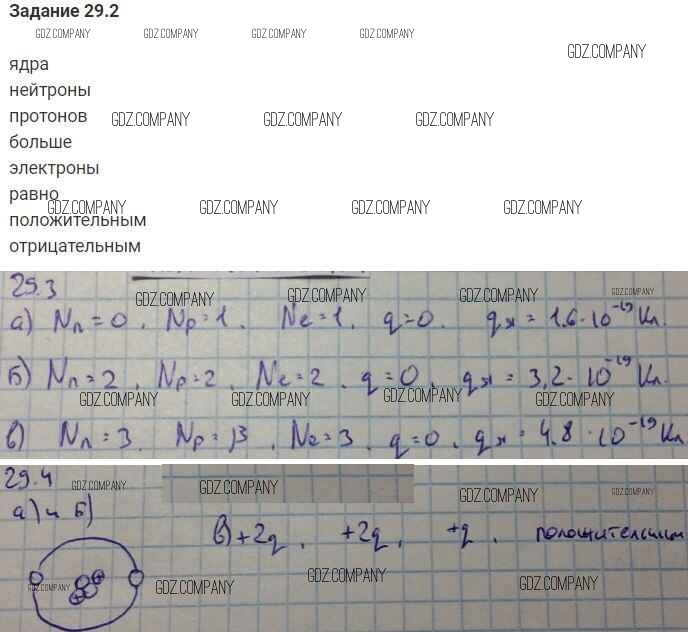 Задание 29.2
GDZ.COMPANY GDZ.COMPANY GDZ.COMPANY GDZ.COMPANY
GDZ.COMPANY
ядра
нейтроны
протонов
GDZ.COMPANY GDZ.COMPANY GDZ.COMPANY
больше
электроны
равно
GDZ.COMPANY GDZ.COMPANY GDZ.COMPANY GDZ.COMPANY
положительным
отрицательным
29.3
GDZ.COMPANY GDZ.COMPANY GDZ.COMPANY GDZ.COMPANY
а) Nп = 0, Np = 1, Ne = 1, q = 0, qя = 1.6 · 10^-19 Кл.
б) Nп = 2, Np = 2, Ne = 2, q = 0, qя = 3,2 · 10^-19 Кл.
GDZ.COMPANY GDZ.COMPANY GDZ.COMPANY GDZ.COMPANY
в) Nп = 3, Np = 3, Ne = 3, q = 0, qя = 4.8 · 10^-19 Кл
29.4
GDZ.COMPANY GDZ.COMPANY GDZ.COMPANY GDZ.COMPANY
а) и б)
в) +2q, +2q, +q, положительным
GDZ.COMPANY GDZ.COMPANY GDZ.COMPANY GDZ.COMPANY